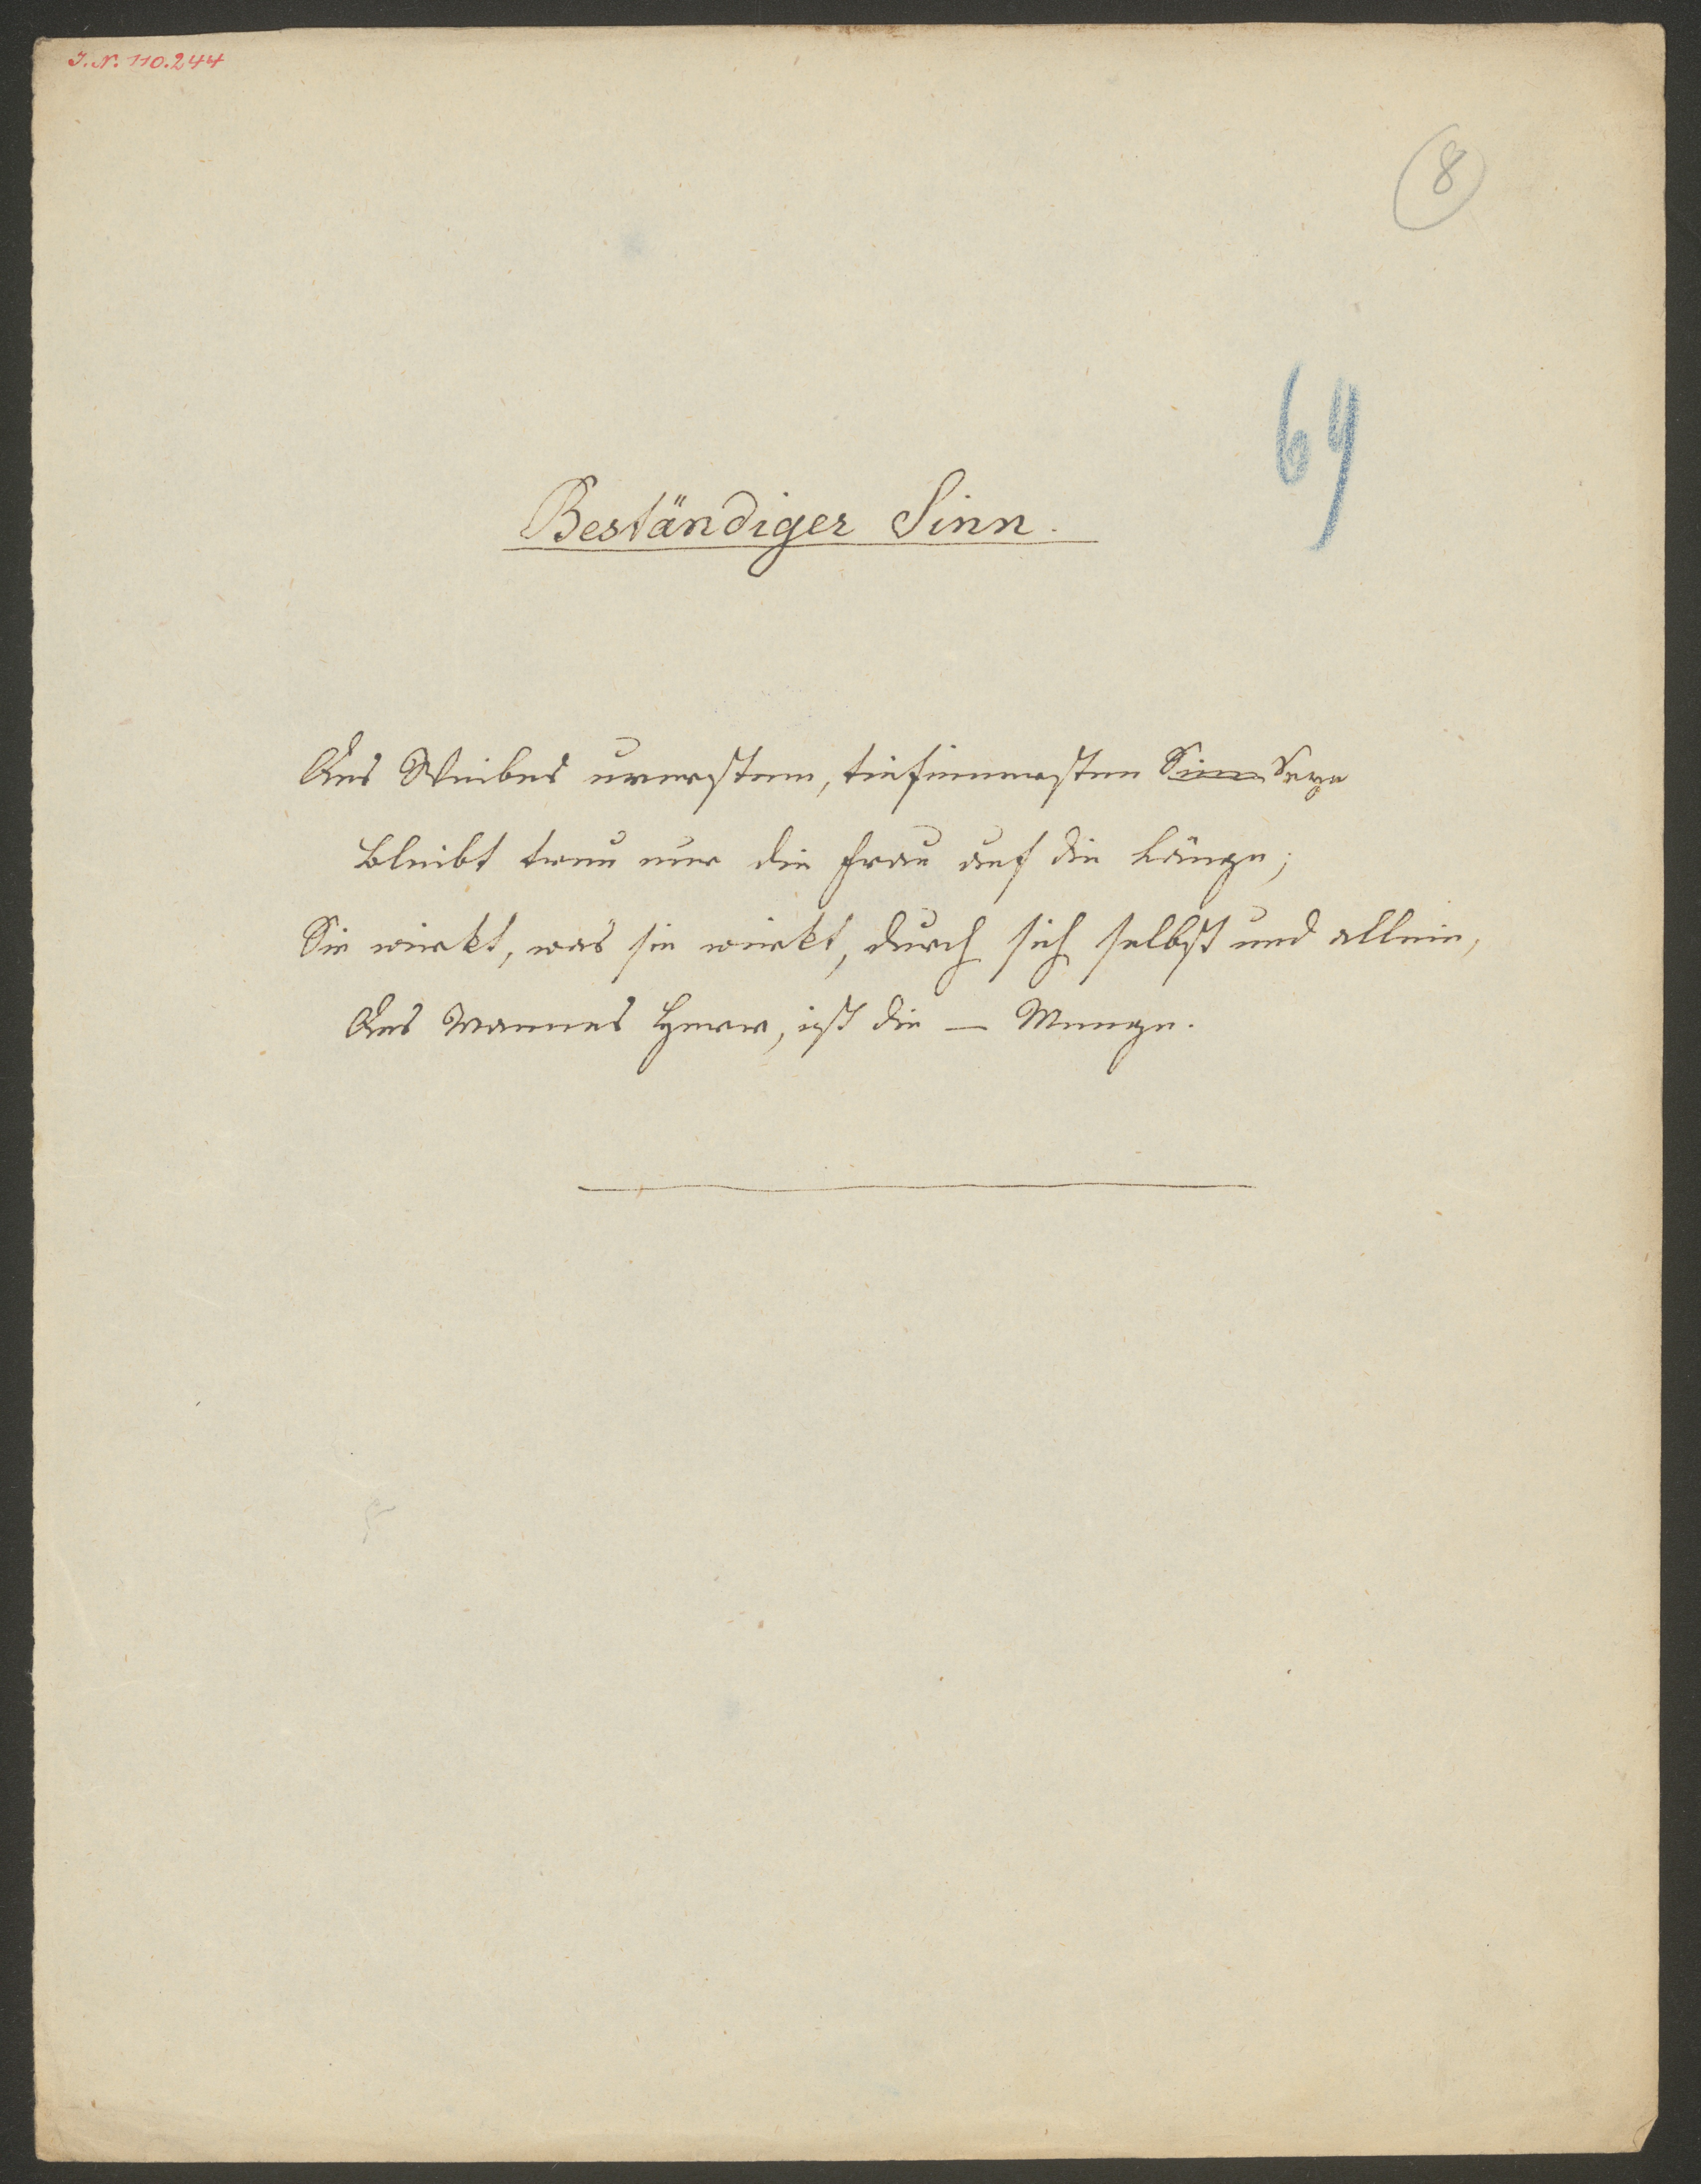 J.N. 110.244
8
69
Beständiger Sinn.
Des Weibes urerstem, tiefinnersten Sinn Seyn
Bleibt treu nur die Frau auf die Länge;
Sie wirkt, was sie wirkt, durch sich selbst und allein,
Des Mannes Herr, ist die — Menge.